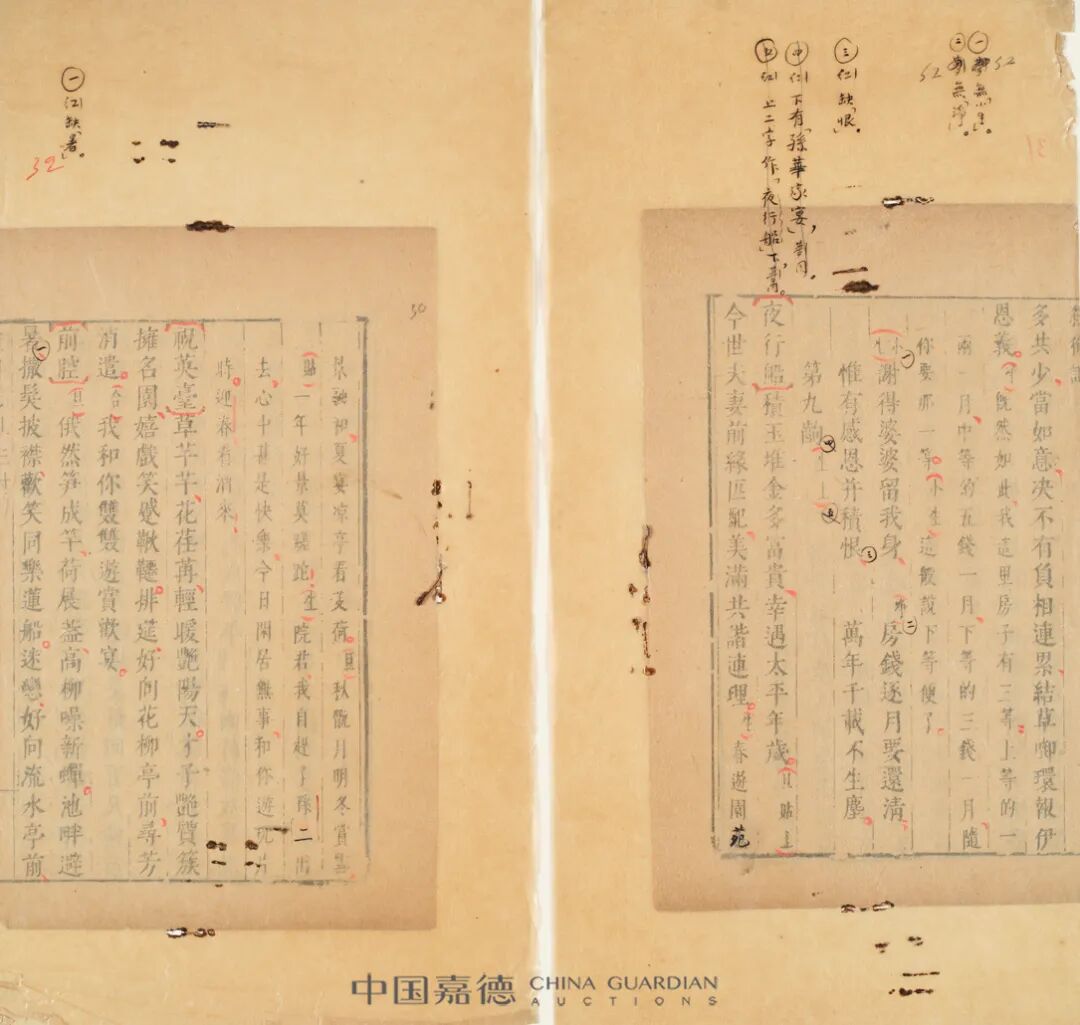 52
52
㈢仁缺「恨」。
㈣仁下有「孫華家宴」,
上二字作「夜行船」
多共少當如意決不有負相連累結草啣環報伊
恩義 既然如此我這里房子有三等上等的一
兩一月中等的五錢一月下等的三錢一月隨
你要那一等 小生 這般說下等便了
謝得婆婆留我身 房錢逐月要還清
惟有感恩并積恨 萬年千載不生塵
第九齣
夜行船 積玉堆金多富貴幸遇太平年歲 旦貼上
今世夫妻前緣匹配美滿共諧連理 生 春遊園苑
㈠仁缺「暑」。
32
50
景 初夏宴凉亭看芰荷 旦 秋翫月明冬賞
貼 一年好景莫蹉跎 生 院君我自趕了孫二出
去心中甚是快樂今日閑居無事和你遊玩片
時迎春看消來
祝英臺 草芊芊花荏苒輕暖艷陽天才子艷質簇
擁名園嬉戲笑蹙鞦韆排筵好向花柳亭前尋芳
消遣 合 我和你雙雙遊賞歡宴
前腔 旦 俄然笋成竿荷展蓋高柳噪新蟬池畔避
暑撒髮披襟歡笑同樂蓮船迷戀好向流水亭前
中国嘉德 CHINA GUARDIAN
AUCTIONS